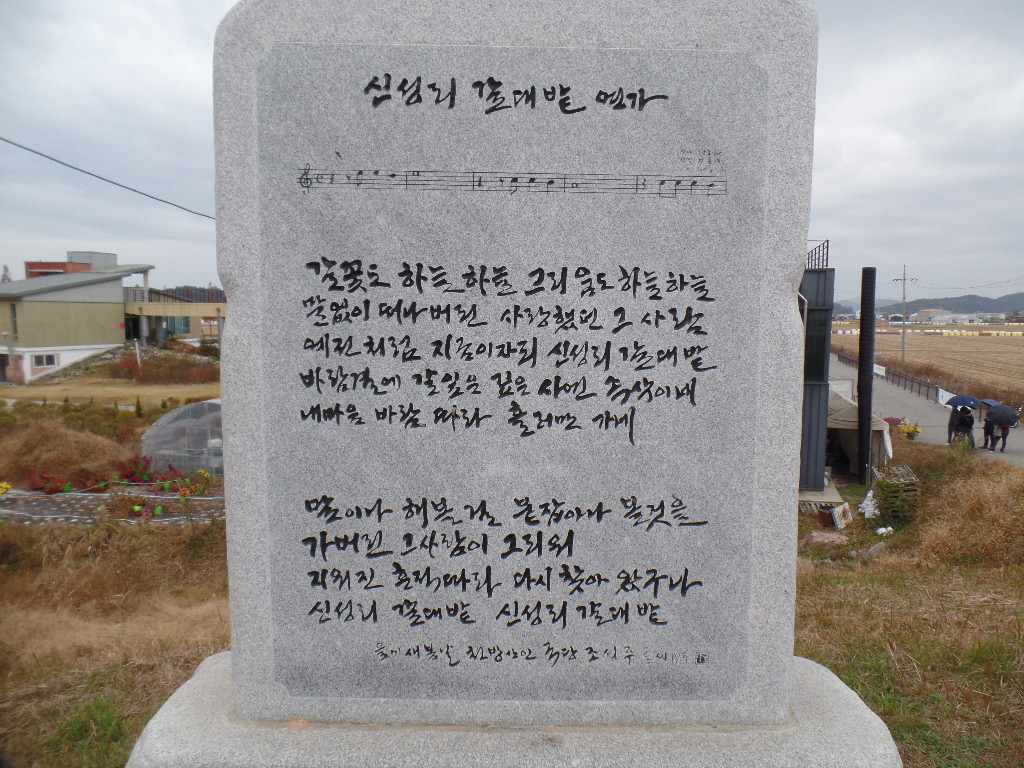 신성리 갈대밭 연가
갈꽃도 하늘하늘 그리움도 하늘하늘
말없이 떠나버린 사랑했던 그 사람
예전처럼 지금이자리 신성리 갈대밭
바람결에 갈잎은 깊은 사연 속삭이네
내마음 바람 따라 흘러만 가네
말이나 해볼걸 붙잡아나 볼것을
가버린 그사람이 그리워
지워진 흔적따라 다시 찾아 왔구나
신성리 갈대밭 신성리 갈대밭
새봄날 천방산인 조성주